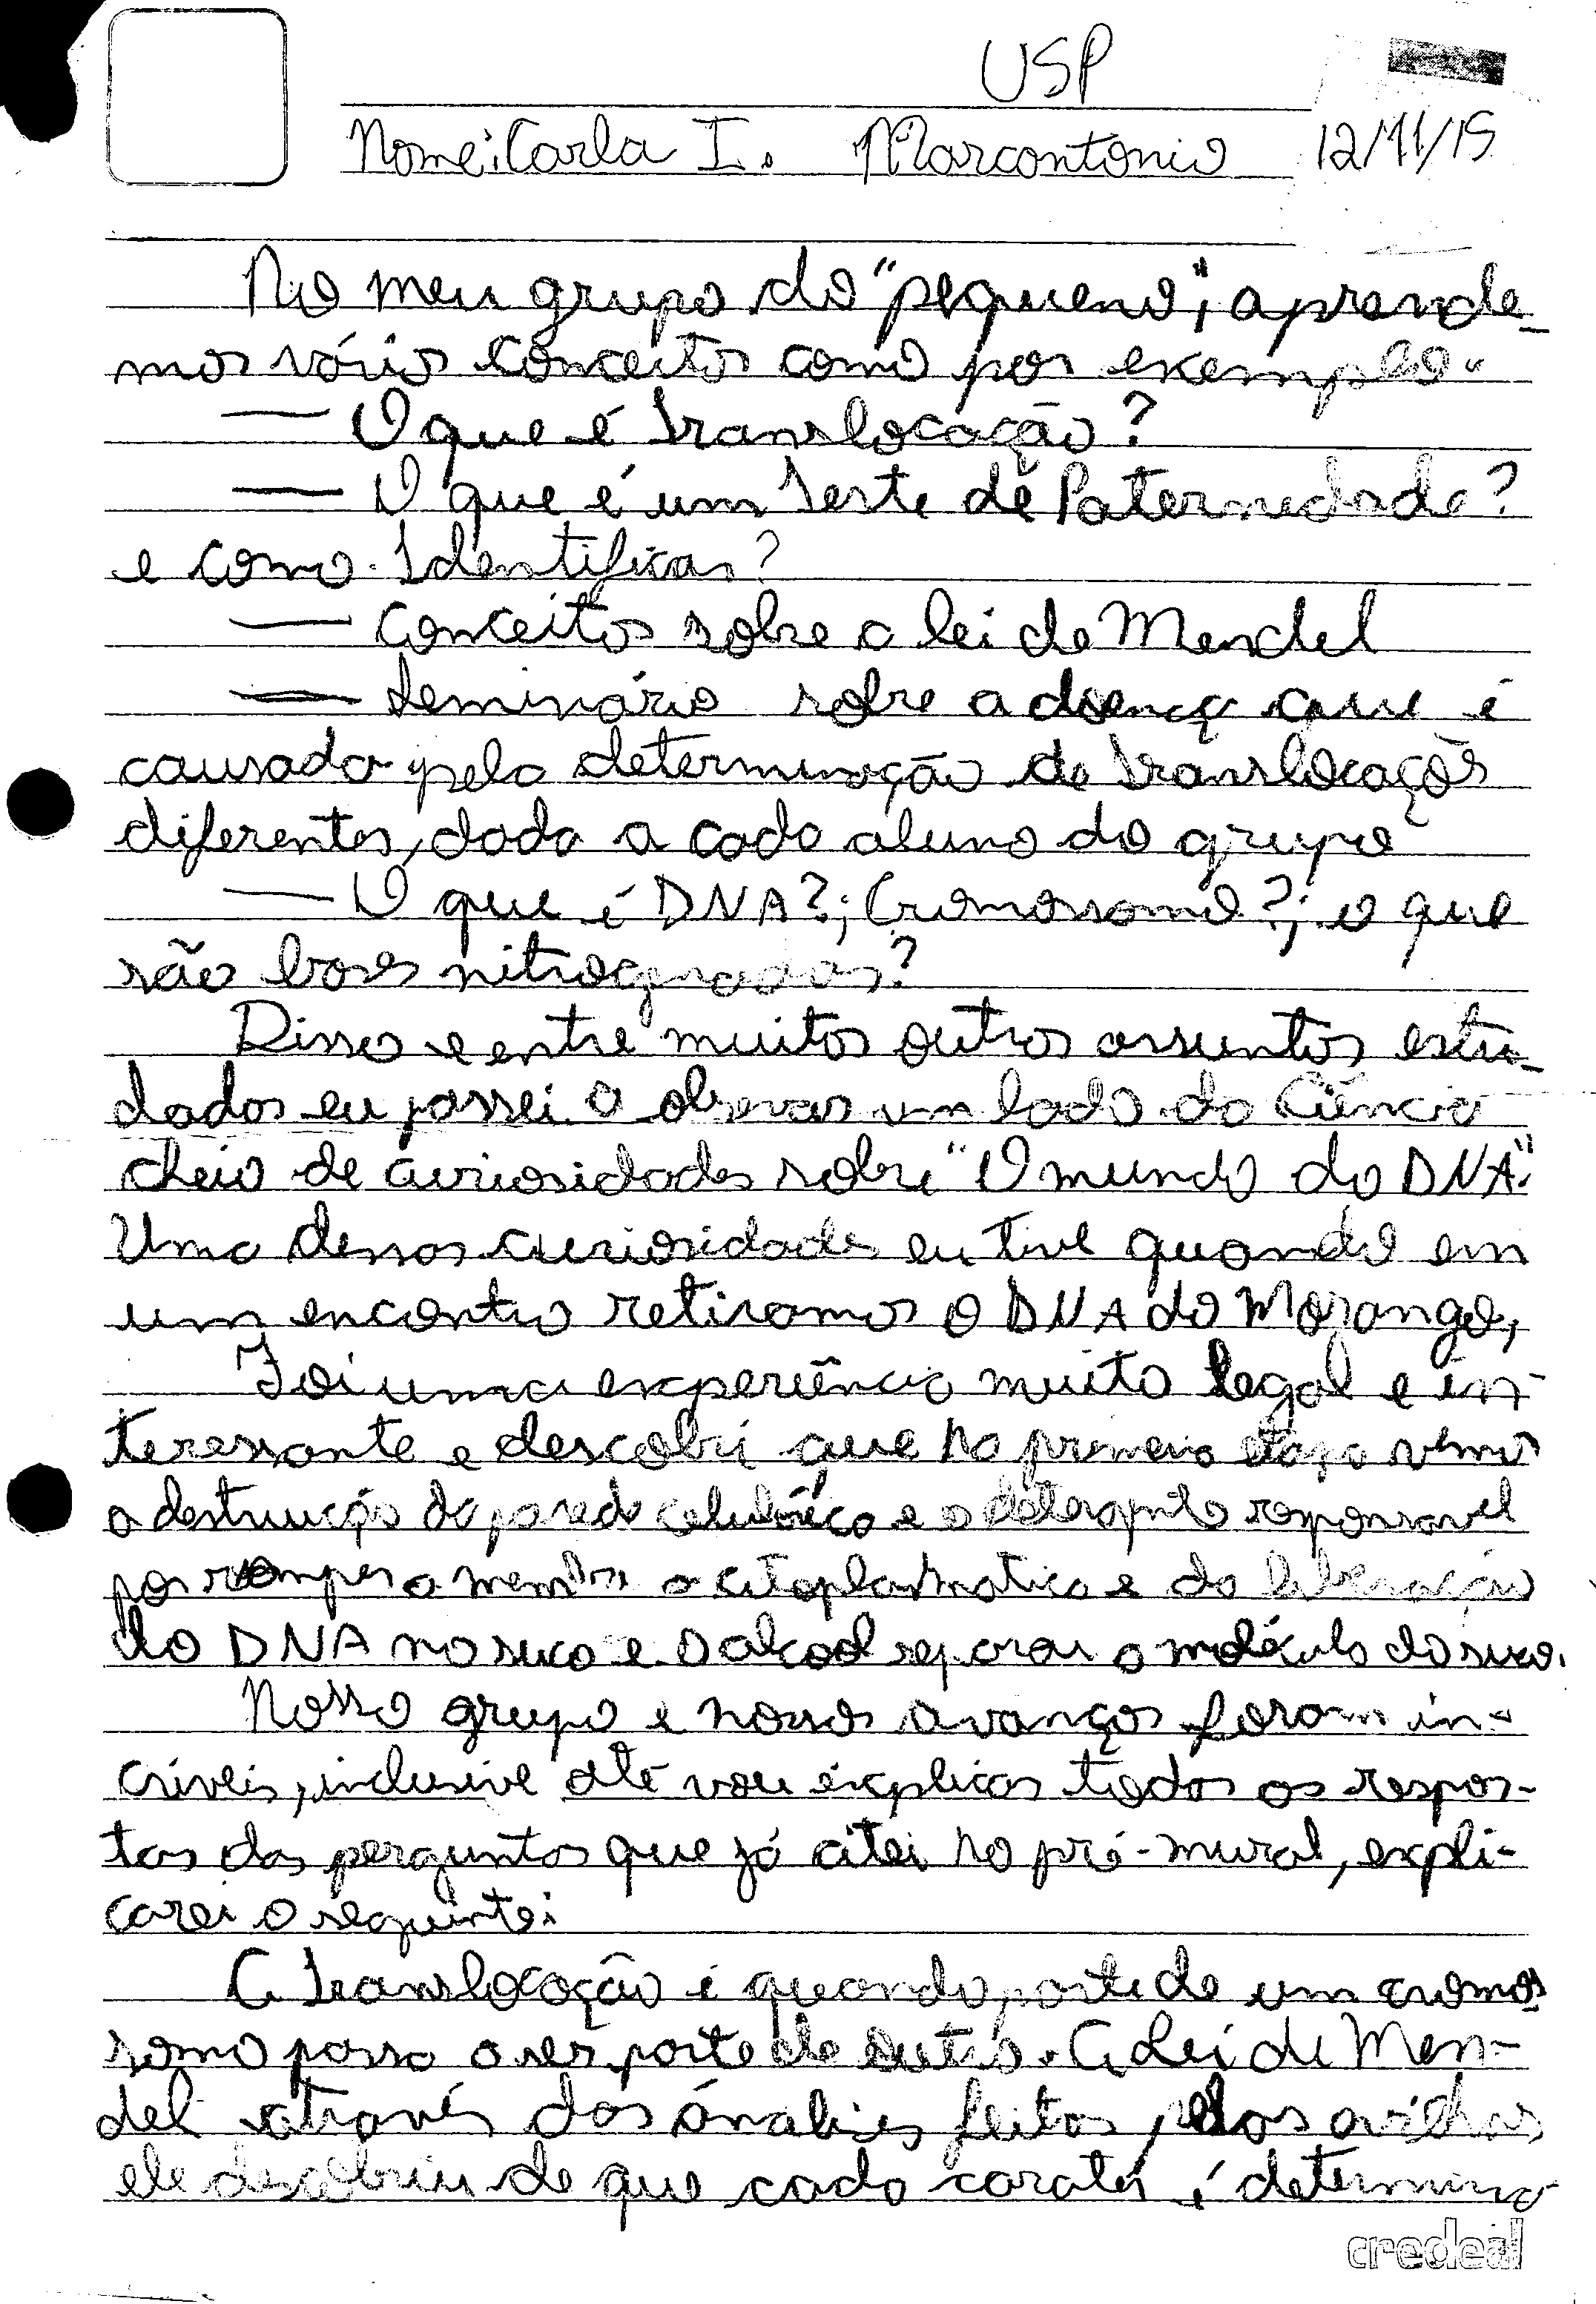 USP
Nome: Carla I. Marcontonio 12/11/15
No meu grupo do "pequeno", aprende-
mos vários conceitos como por exemplo"
— O que é translocação?
— O que é um teste de Paternidade?
e como Identificar?
— Conceitos sobre a lei de Mendel
— Seminário sobre a doença que é
causada pela determinação de translocaçõs
diferentes, dada a cada aluno do grupo
— O que é DNA?; Cromossomo?; o que
são bases nitrogenadas?
Disso e entre muitos outros assuntos estu-
dados eu passei a obsevar um lado da Ciência
cheio de curiosidades sobre "O mundo do DNA".
Uma dessas curiosidades eu tive quando em
um encontro retiramos o DNA do Morango,
Foi uma experiência muito legal e in-
teressante e descobri que na primeira etapa vemos
a destruição da parede celulósica e o detergente responsavel
por romper a membra a citoplasmatica e da liberação
do DNA no suco e o alcool separar a molécula do suco.
Nosso grupo e nossos avanços foram in-
críveis, inclusive até vou explicar todas as respos-
tas das perguntas que já citei no pré-mural, expli-
carei o seguinte:
A translocação é quando parte de um cromos
somo passa a ser parte de outro. A Lei de Men-
del através das análises feitas, pelas ervilhas
ele descobriu de que cada caráter é determina
credeal